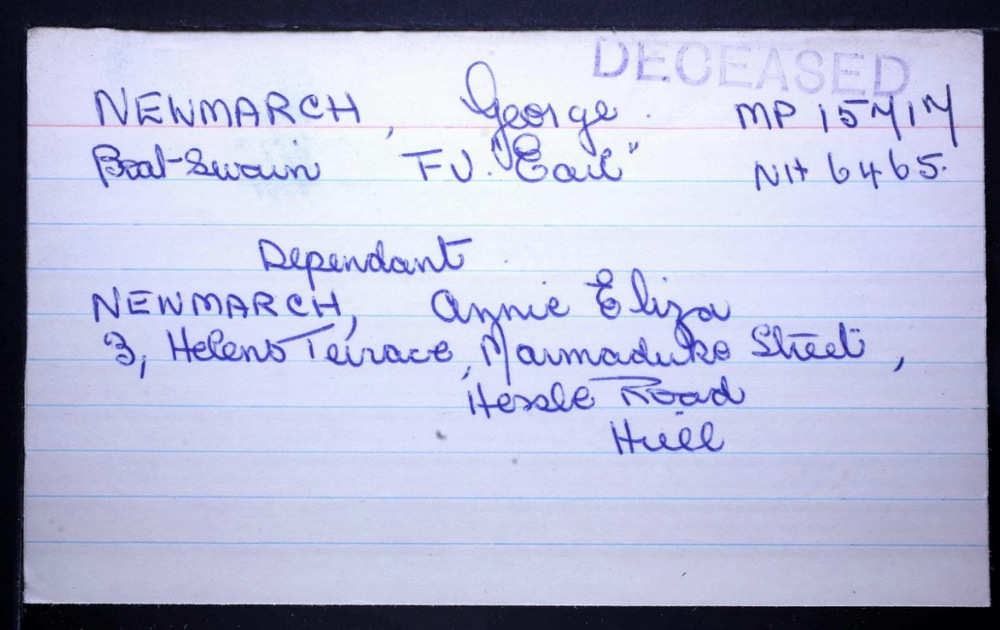 DECEASED
NEWMARCH, George. MP 15717
Boat-Swain F.V. "Earl" NH 6465.
Dependant.
NEWMARCH, Annie Eliza
3, Helens Terrace, Marmaduke Street,
Hessle Road
Hull